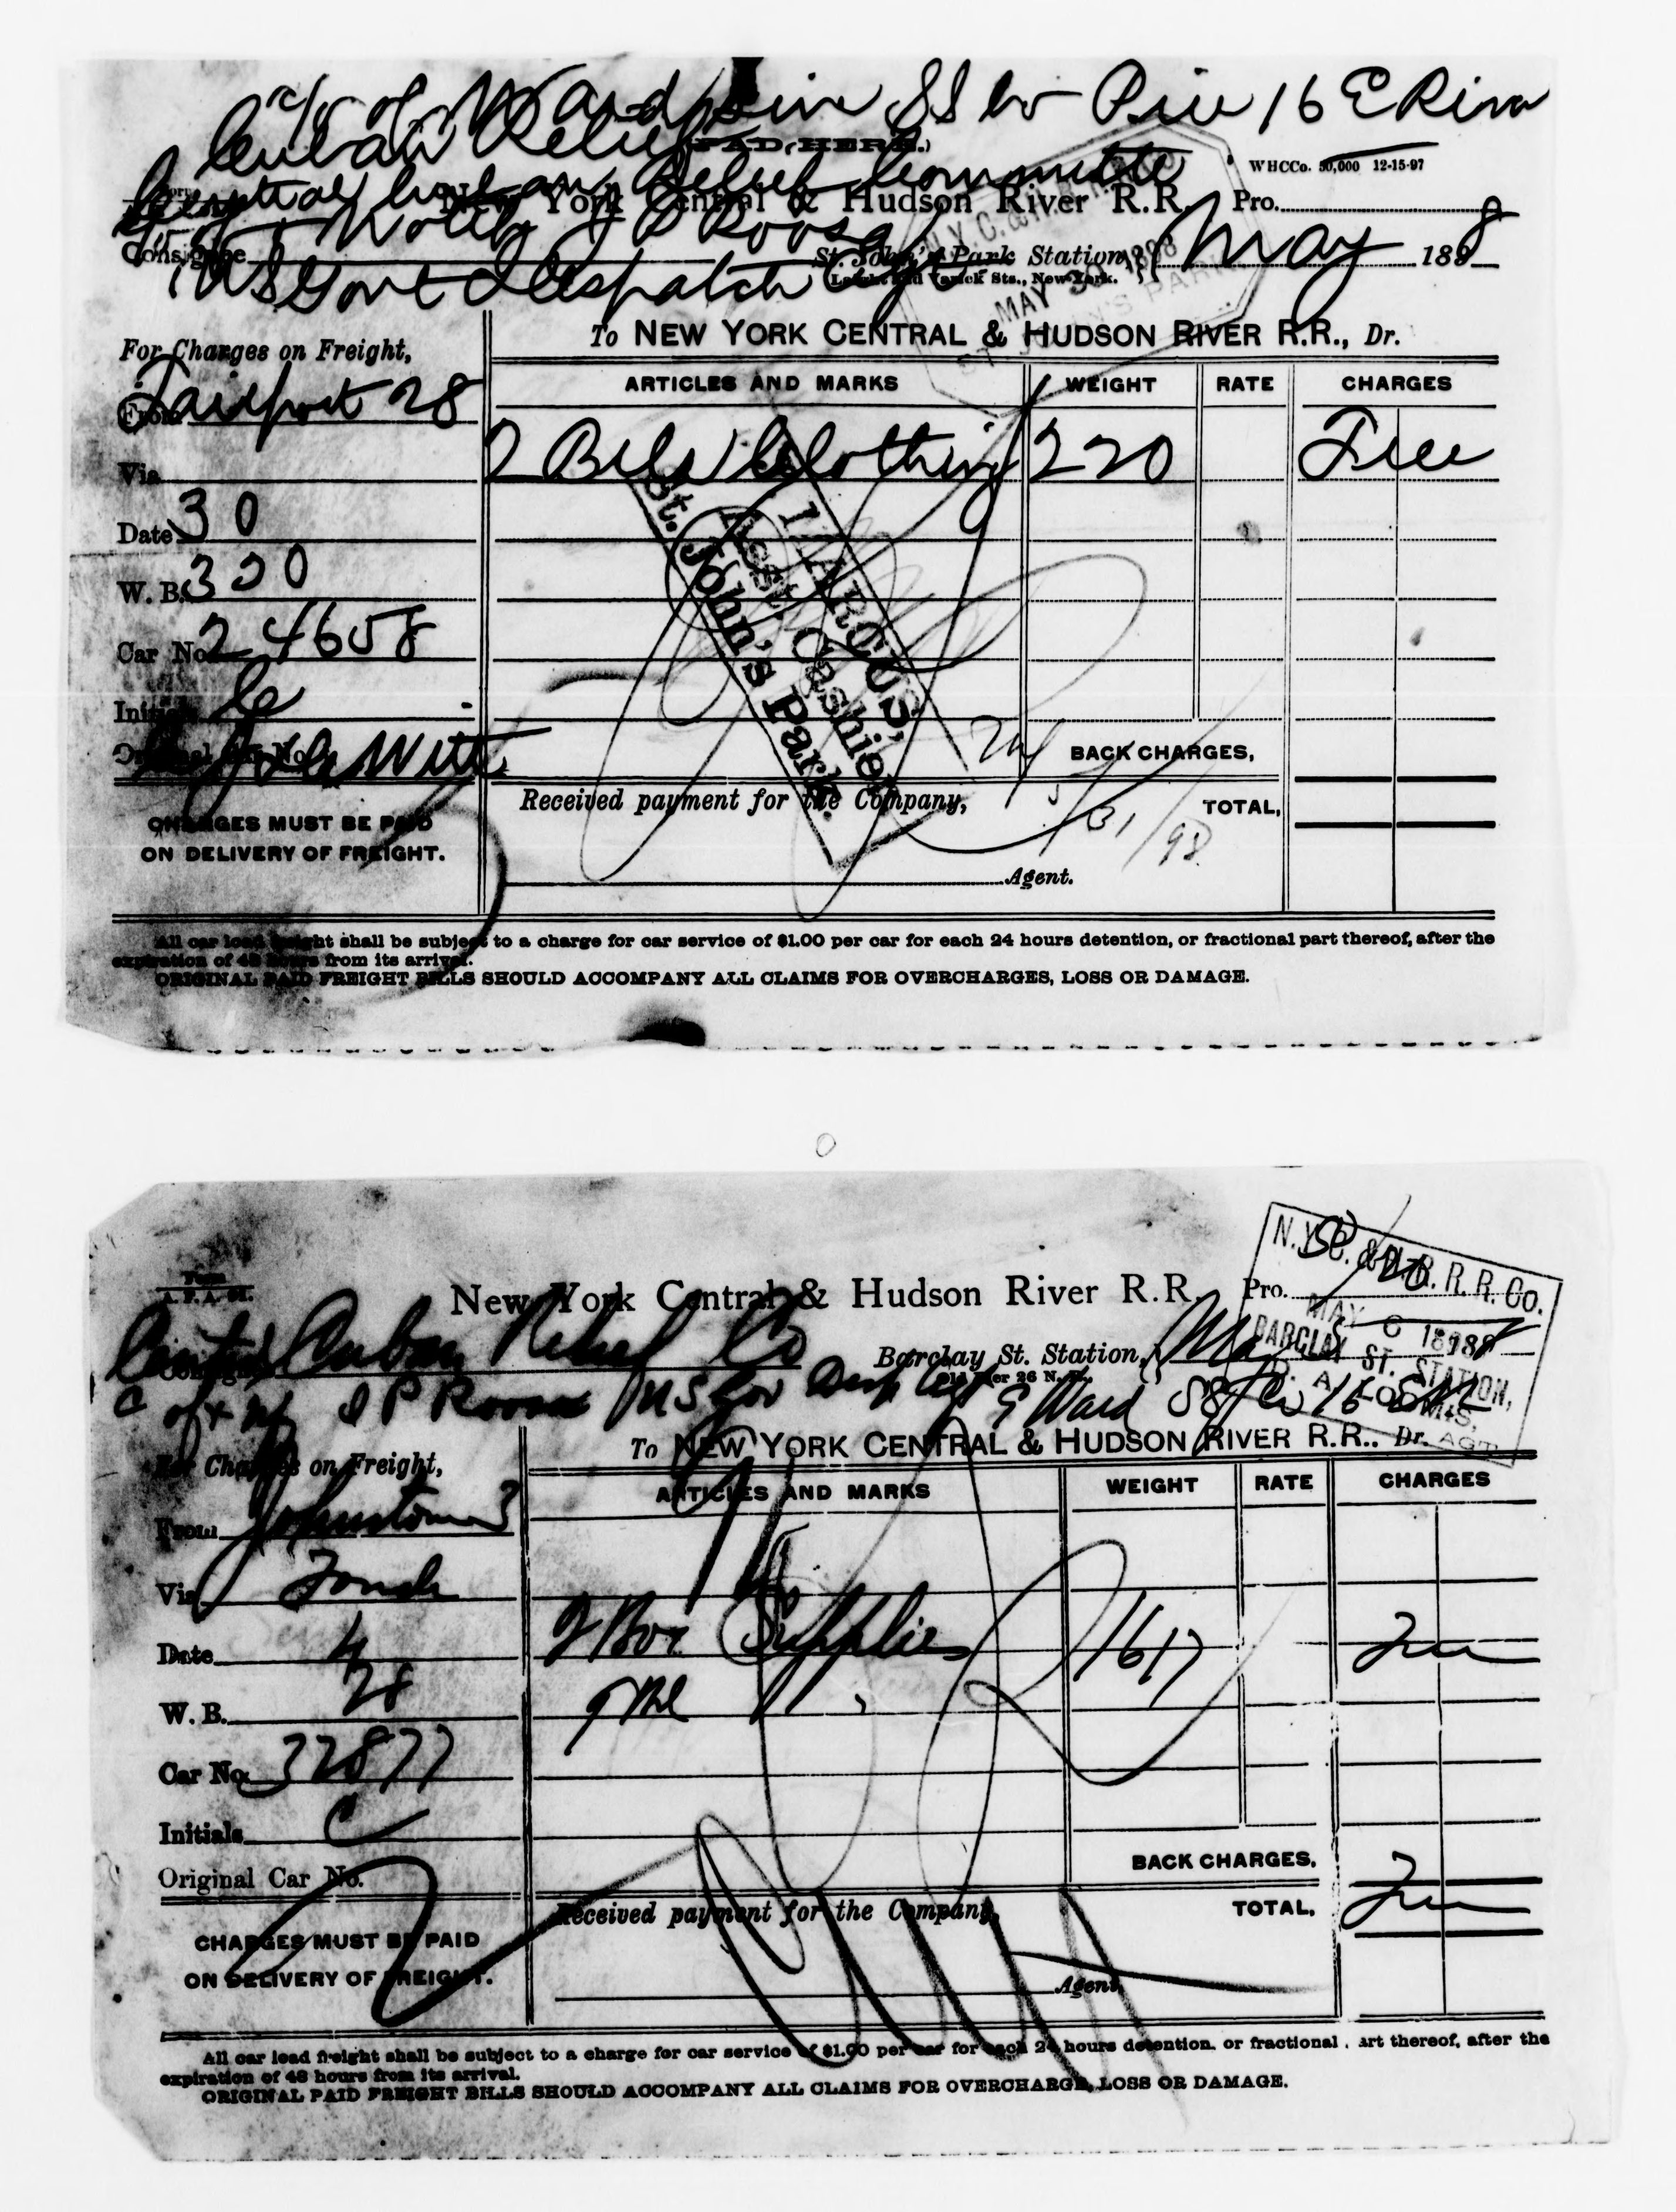 c/o of Ward Line SS Co Pier 16 E River
Cuban Relief
(PAID HERE.)
WHCCo. 50,000 12-15-97
Central Cuban Relief Committe
New York Central & Hudson River R.R. Pro.
Consignee
St. John's Park Station, May 1898
Laight and Varick Sts., New-York.
US Govt Despatch Agt
To NEW YORK CENTRAL & HUDSON RIVER R.R., Dr.
For Charges on Freight,
ARTICLES AND MARKS WEIGHT RATE CHARGES
From Fairport 28
2 Bxs Clothing 220 Free
Via
Date 30
W. B. 320
Car No. 24658
Initials C
Original Car No.
DeWitt
BACK CHARGES,
MARCUS,
Asst. Cashier
St. John's Park.
5/31/98
Received payment for the Company,
TOTAL,
CHARGES MUST BE PAID
ON DELIVERY OF FREIGHT.
Agent.
All car load freight shall be subject to a charge for car service of $1.00 per car for each 24 hours detention, or fractional part thereof, after the
expiration of 48 hours from its arrival.
ORIGINAL PAID FREIGHT BILLS SHOULD ACCOMPANY ALL CLAIMS FOR OVERCHARGES, LOSS OR DAMAGE.
N.Y.C. & H.R. R.R. Co.
MAY 6 1898
BARCLAY ST. STATION,
Form
A.F.A.
New York Central & Hudson River R.R. Pro.
Central Cuban Relief Co
Consignee
Barclay St. Station, May
Old Pier 26 N. R.,
c of N P Roosa US Gov Desp Agt Ward SS Co 16 E R
To NEW YORK CENTRAL & HUDSON RIVER R.R., Dr.
For Charges on Freight,
ARTICLES AND MARKS WEIGHT RATE CHARGES
From Johnstown 3
Via Fonda
Date 4
2 Box Supplies 1617 Free
W. B. 28
Car No. 32877
Initials C
Original Car No.
BACK CHARGES,
Received payment for the Company,
TOTAL, Free
CHARGES MUST BE PAID
ON DELIVERY OF FREIGHT.
Agent.
All car load freight shall be subject to a charge for car service of $1.00 per car for each 24 hours detention, or fractional part thereof, after the
expiration of 48 hours from its arrival.
ORIGINAL PAID FREIGHT BILLS SHOULD ACCOMPANY ALL CLAIMS FOR OVERCHARGE, LOSS OR DAMAGE.